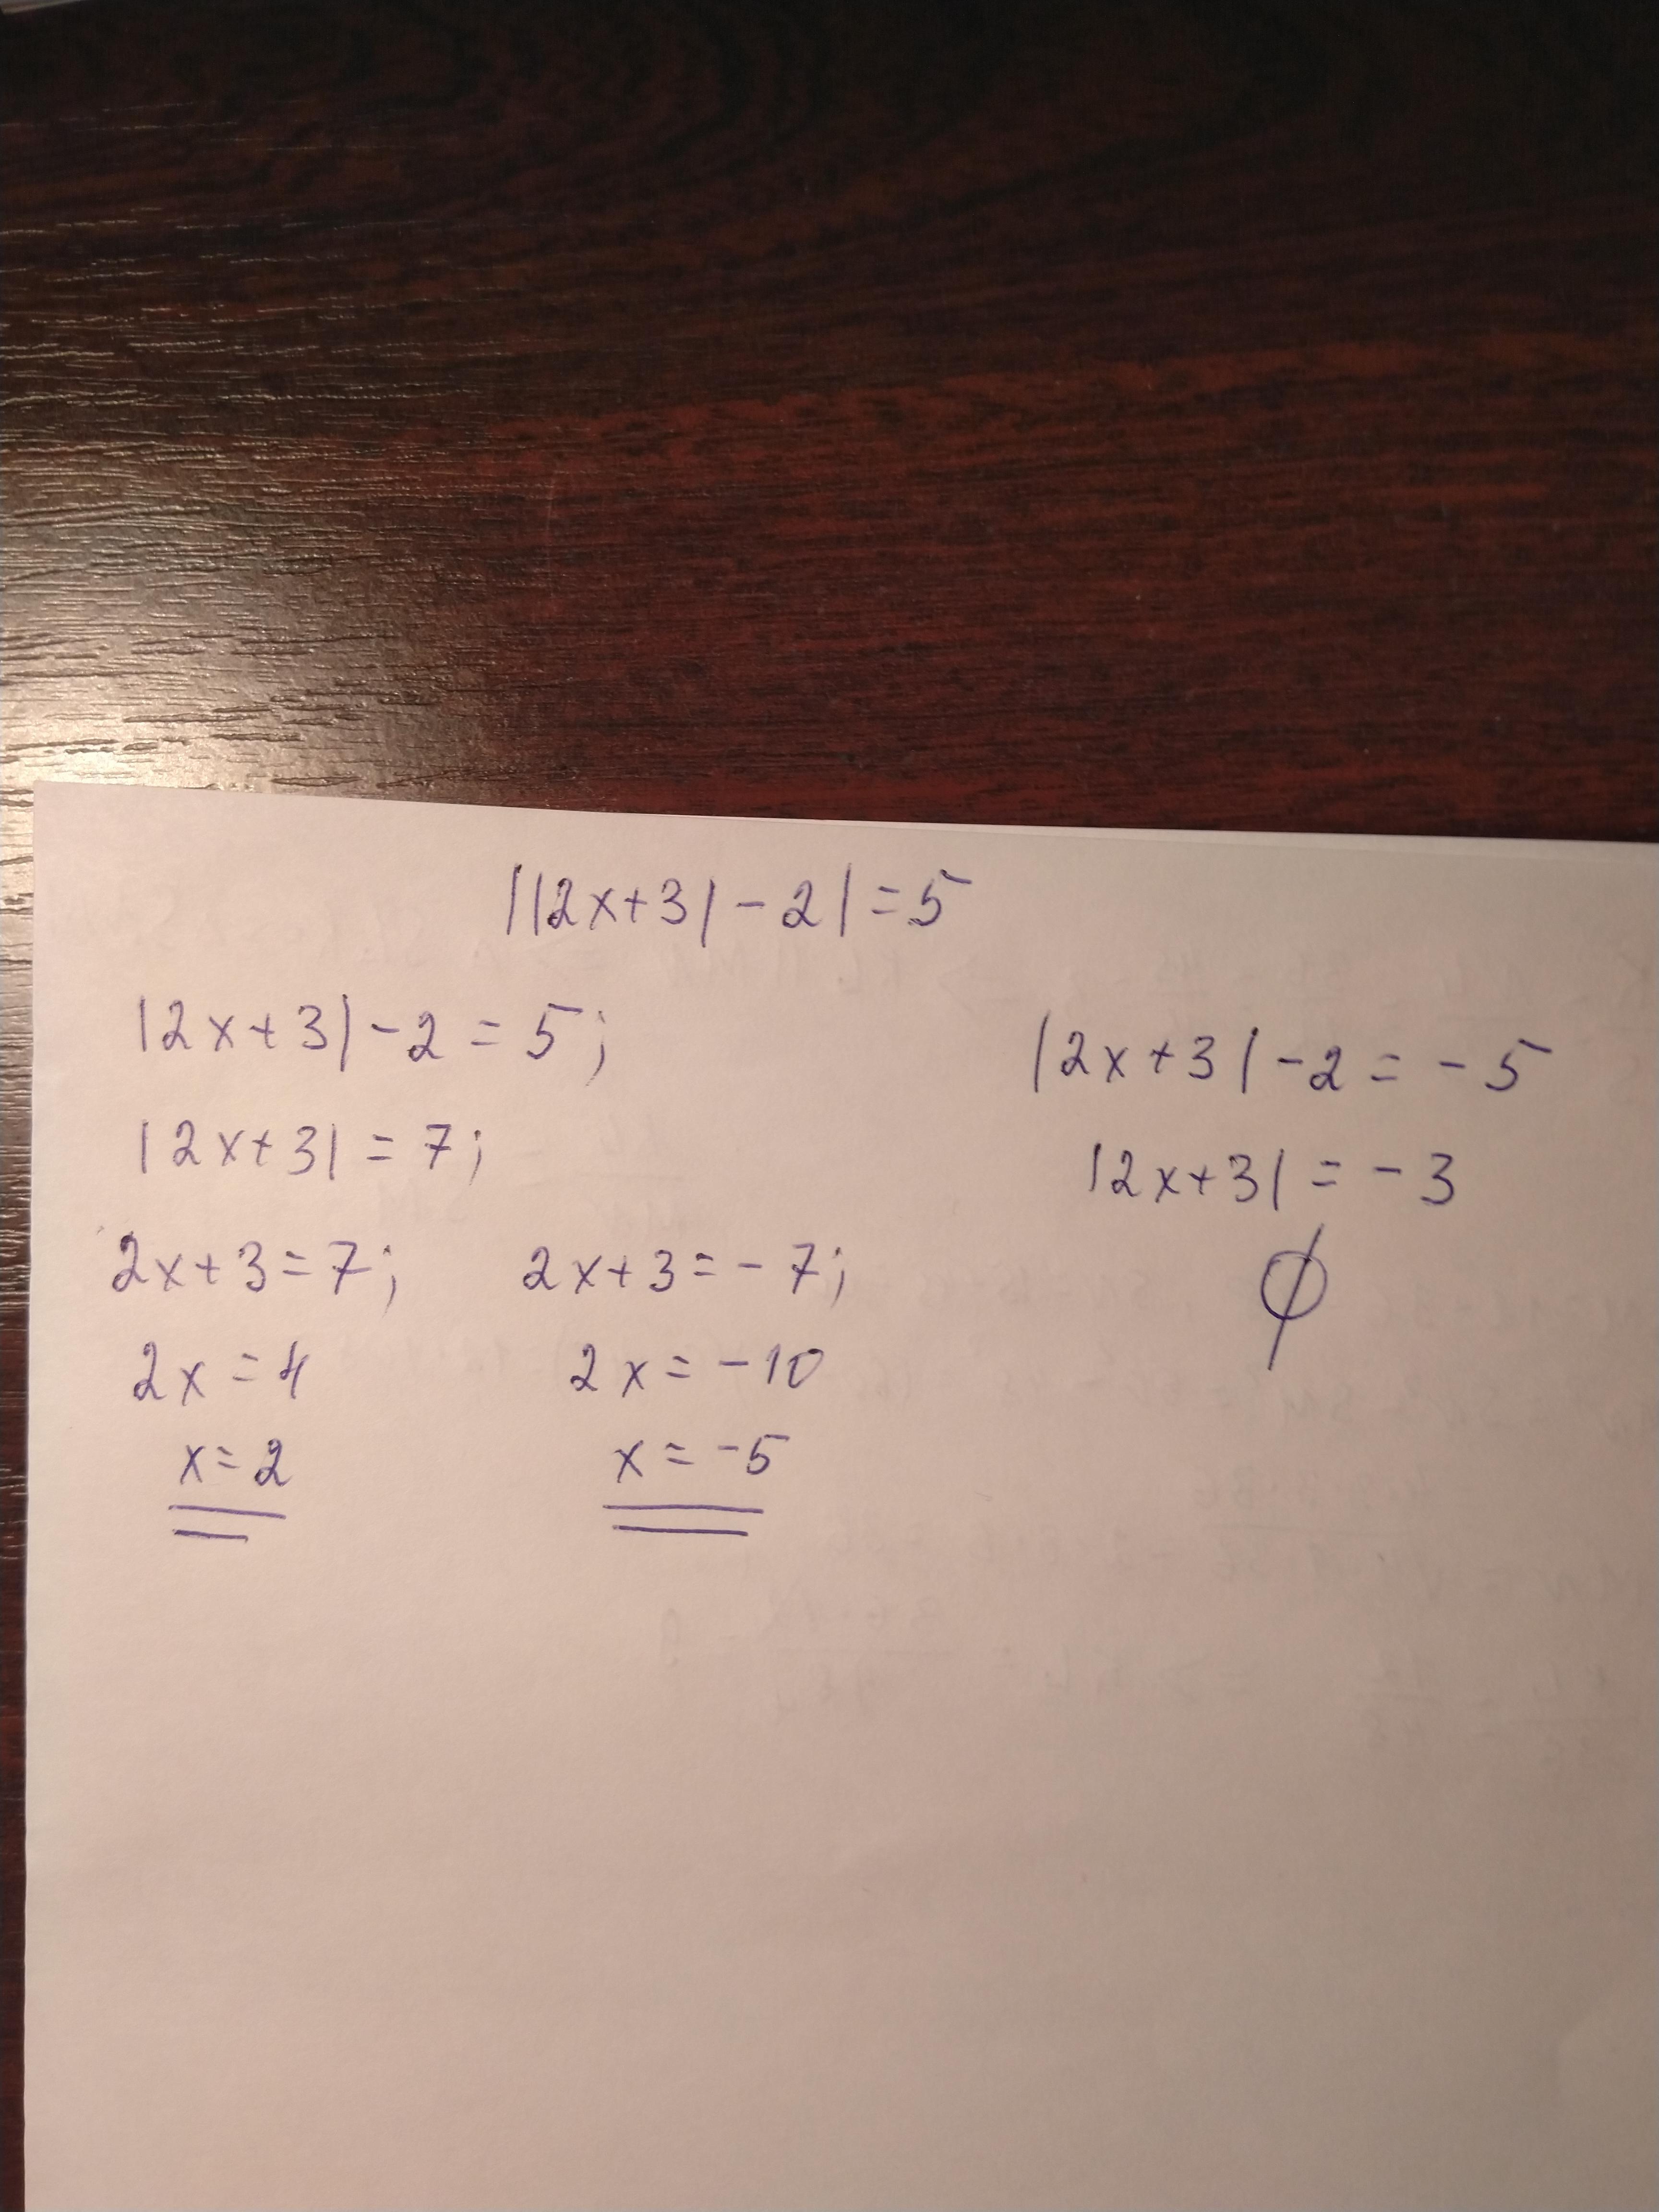 ||2x+3|-2|=5
|2x+3|-2=5;
|2x+3|-2=-5
|2x+3|=7;
|2x+3|=-3
2x+3=7;
2x+3=-7;
∅
2x=4
2x=-10
x=2
x=-5